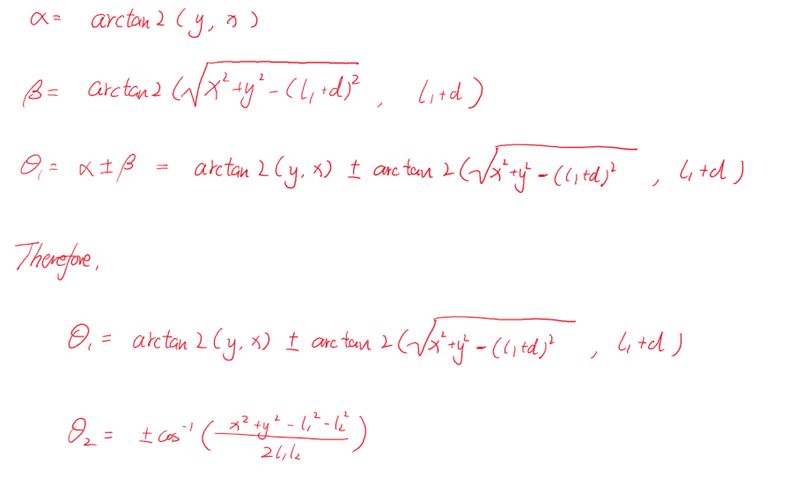 α = arctan2(y, x)
β = arctan2(√(x²+y²-(l₁+d)²), l₁+d)
θ₁ = α ± β = arctan2(y, x) ± arctan2(√(x²+y²-(l₁+d)²), l₁+d)
Therefore,
θ₁ = arctan2(y, x) ± arctan2(√(x²+y²-(l₁+d)²), l₁+d)
θ₂ = ± cos⁻¹((x²+y²-l₁²-l₂²)/(2l₁l₂))